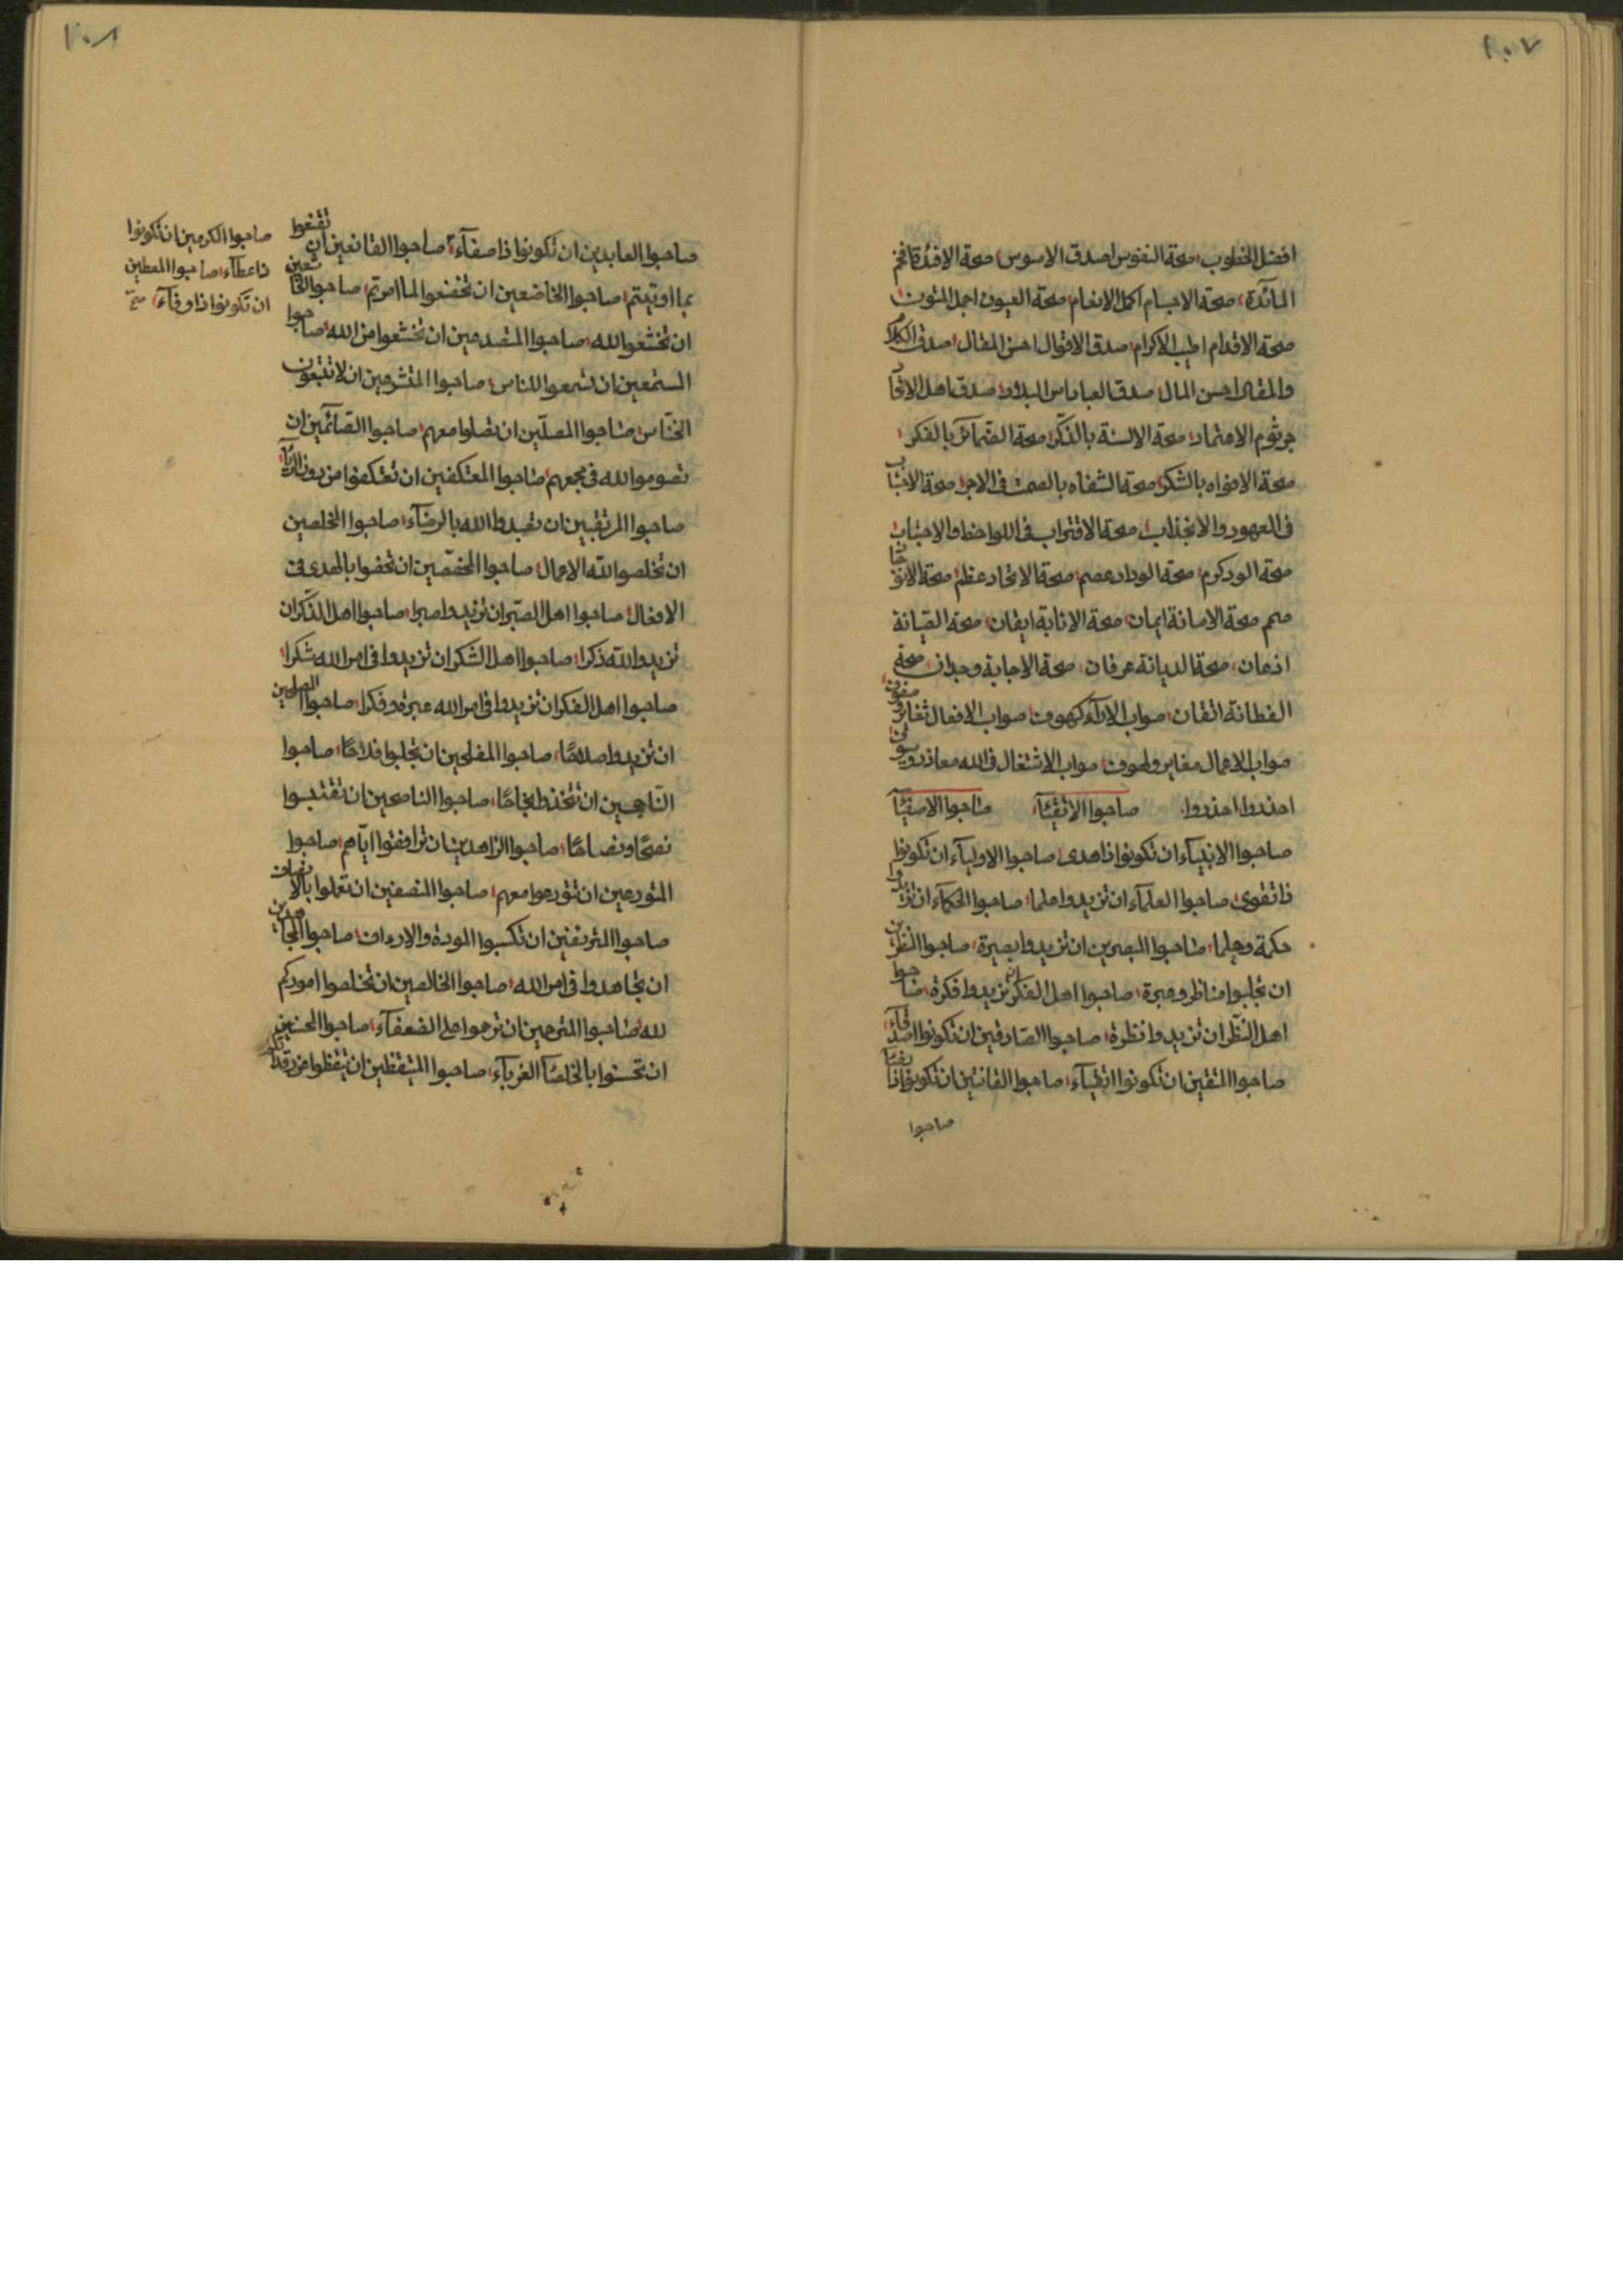 ٢٠٧
افضل الخطوب صحة النفوس اصدق الاسوس صحة الافئدة افخم
المائدة صحة الاجسام اكمل الانعام صحة العيون اجمل
صحة الاقدام اطيب الاكرام صدق الاقوال احسن المقال صدق الكلام
والمقال احسن المال صدق العباد اس البلاد صدق اهل الاتحاد
جرثوم الاعتماد صحة الالسنة بالذكر صحة الضمائر بالفكر
صحة الافواه بالشكر صحة الشفاه بالصمت فى صحة
فى العهود والانجذاب صحة الاقتراب فى اللواحظ والاجتناب
صحة الود كرم صحة الوداد عصم صحة الاتحاد عظم صحة
صحة الامانة ايمان صحة الانابة ايقان صحة الصيانة
اذعان صحة الديانة عرفان صحة الاجابة وجدان صحة
الفطانة اتقان صواب الاراء كهوف صواب الافعال
صواب الاعمال صواب الاشتغال فى الله
احذروا احذروا صاحبوا الاتقيآء صاحبوا الاصفيآء
صاحبوا الانبيآء ان تكونوا ذا هدى صاحبوا الاوليآء ان تكونوا
ذا تقوى صاحبوا العلمآء ان تزيدوا علما صاحبوا الحكمآء ان تزيدوا
حكمة وحلما صاحبوا البصرين ان تزيدوا بصيرة صاحبوا
ان تجلبوا مناظر وعبرة صاحبوا اهل الفكر ان تزيدوا فكرة صاحبوا
اهل النظر ان تزيدوا نظرة صاحبوا الصادقين ان تكونوا اصدقآء
صاحبوا المتقين ان تكونوا اتقيآء صاحبوا القانتين ان تكونوا
صاحبوا
٢٠٨
صاحبوا العابدين ان تكونوا ذا صفآء صاحبوا القانعين ان تقنعوا
بما اوتيتم صاحبوا الخاضعين ان تخضعوا لما امرتم صاحبوا الخاشعين
ان تخشعوا لله صاحبوا المتصدعين ان تخشعوا من الله صاحبوا
المستمعين ان تسمعوا للناس صاحبوا المتشرعين ان لا تتبعون
الخناس صاحبوا المصلين ان تصلوا معهم صاحبوا الصائمين ان
تصوموا لله فى جمعهم صاحبوا المعتكفين ان تعتكفوا من دون الريآء
صاحبوا المرتقبين ان تعبدوا الله بالرضآء صاحبوا المخلصين
ان تخلصوا لله الاعمال صاحبوا المخصصين ان تخصوا بالهدى فى
الافعال صاحبوا اهل الصبر ان تزيدوا صبرا صاحبوا اهل الذكر ان
تزيدوا لله ذكرا صاحبوا اهل الشكر ان تزيدوا فى امر الله شكرا
صاحبوا اهل الفكر ان تزيدوا فى امر الله عبرة وفكرا صاحبوا الصلحين
ان تزيدوا صلاحا صاحبوا المفلحين ان تجلبوا فلاحا صاحبوا
الناجحين ان تتخذوا نجاحا صاحبوا الناصحين ان تقتبسوا
نصحا ونصاحا صاحبوا الزاهدين ان ترافقوا ايامهم صاحبوا
المتورعين ان تتورعوا معهم صاحبوا المنصفين ان تعملوا بالانصاف
صاحبوا ان تكسبوا المودة صاحبوا المجاهدين
ان تجاهدوا فى امر الله صاحبوا الخالصين ان تخلصوا اموركم
لله صاحبوا المترحمين ان ترحموا على الضعفآء صاحبوا المحسنين
ان تحسنوا الغربآء صاحبوا المتيقظين ان تيقظوا من
صاحبوا الكرمين ان تكونوا
ذا عطآء صاحبوا المعطين
ان تكونوا ذا وفآء صح